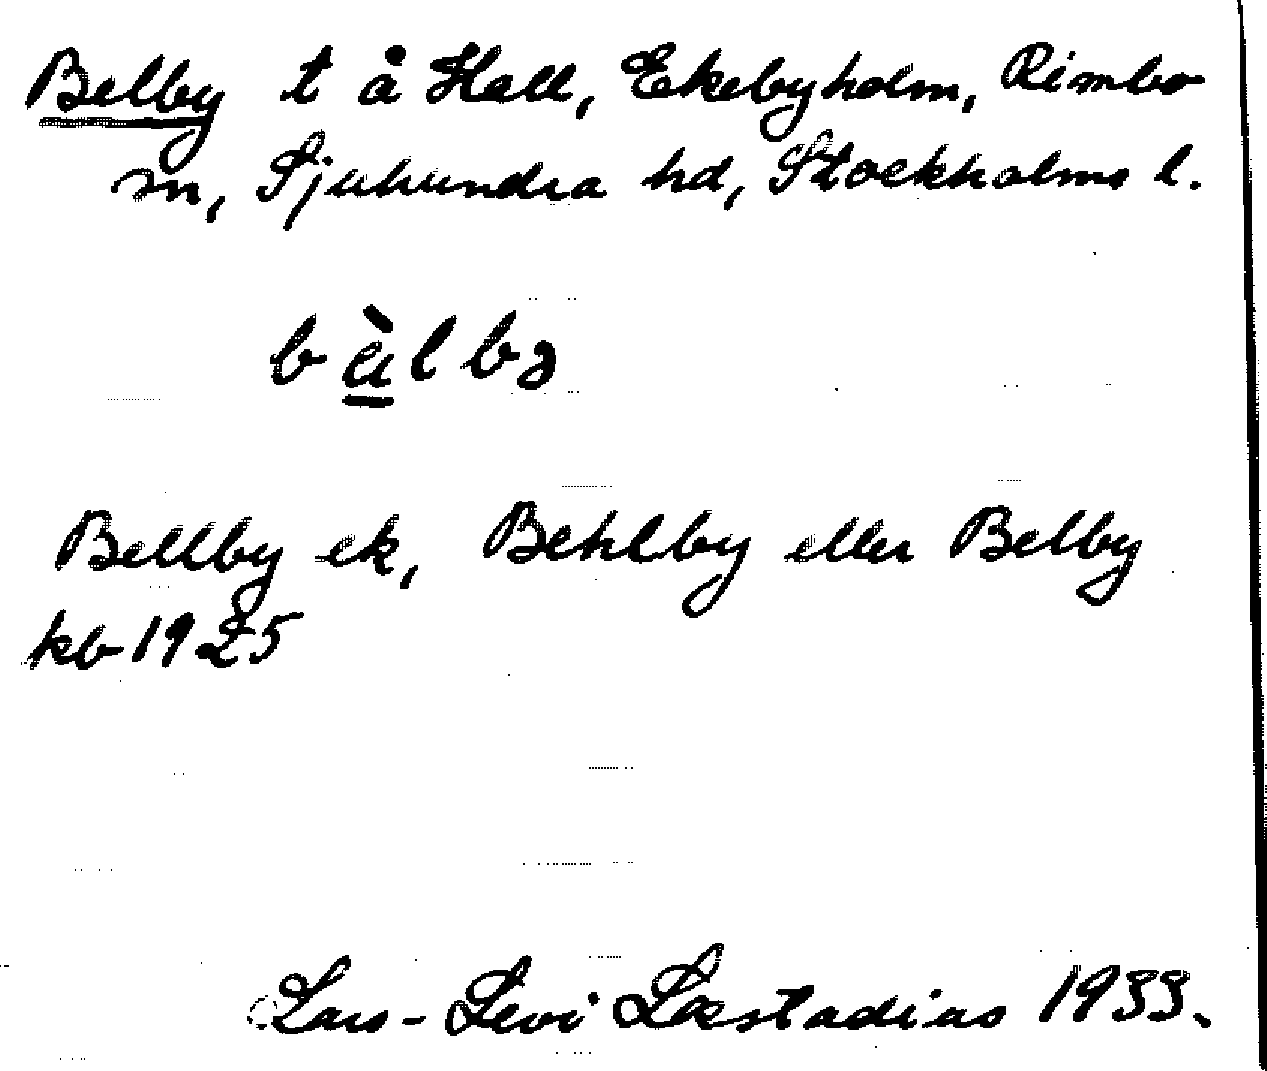 Belby t å Hall, Ekebyholm, Rimbo
sn, Sjuhundra hd, Stockholms l.
bạ̀lbə
Bellby ek, Behlby eller Belby
kb 1925
Lars-Levi Læstadius 1933.